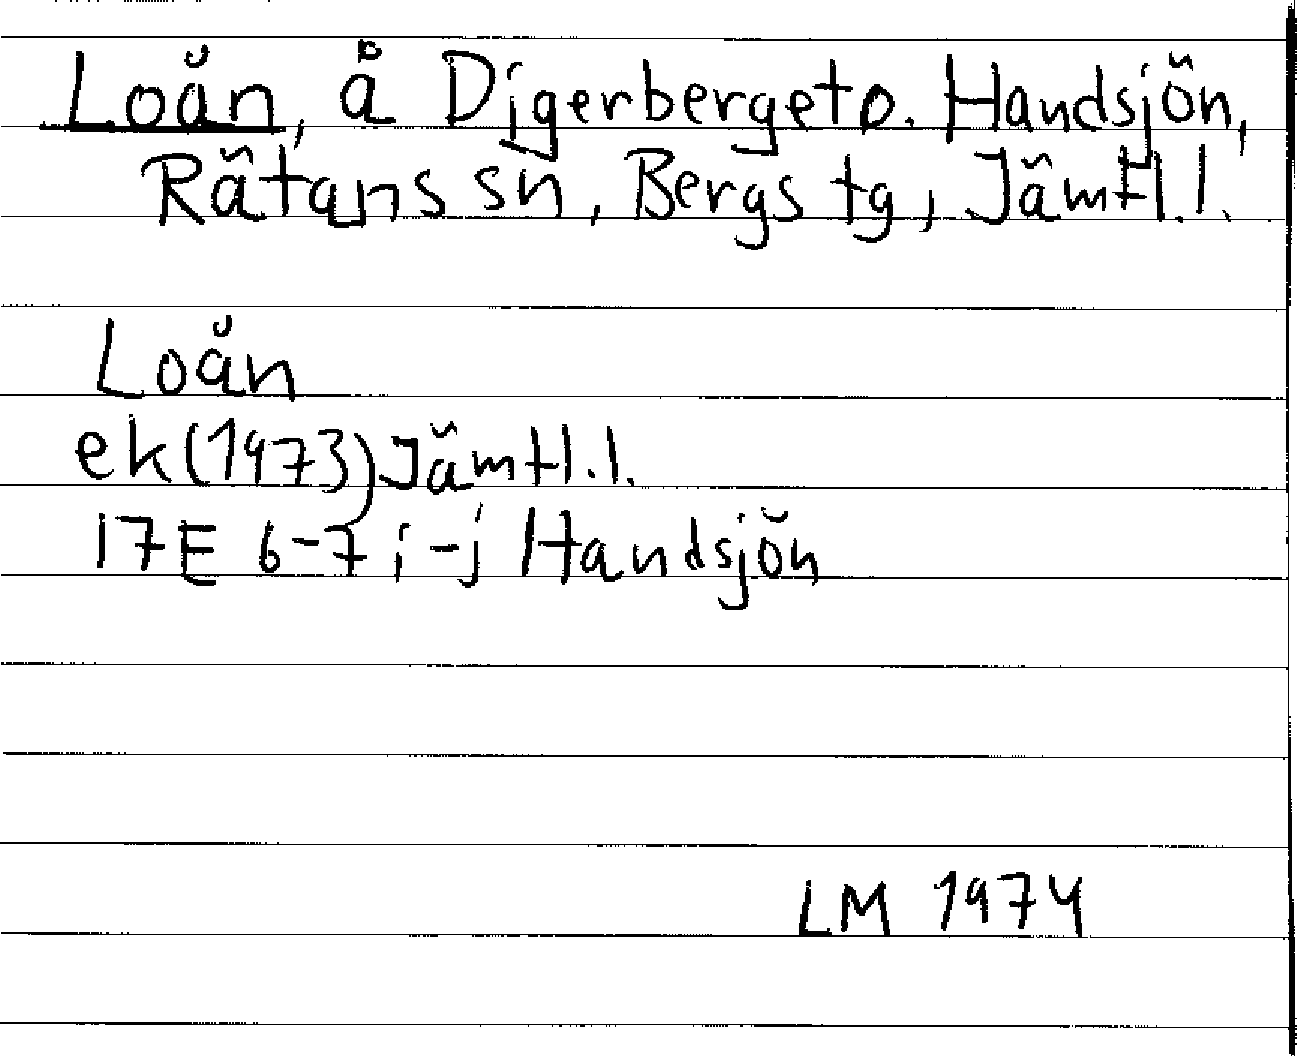 Loån, å Digerberget o. Handsjön,
Rätans sn, Bergs tg, Jämtl.l.
Loån
ek(1973)Jämtl.l.
17E 6-7 i-j Handsjön
LM 1974